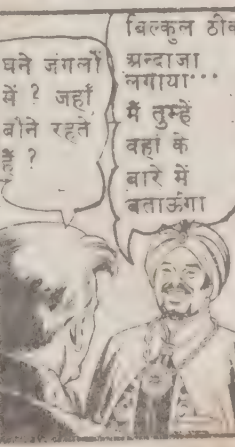 घने जंगलों
में ? जहाँ
बौने रहते
हैं ?
बिल्कुल ठीक
अन्दाजा
लगाया···
मैं तुम्हें
वहां के
बारे में
बताऊंगा